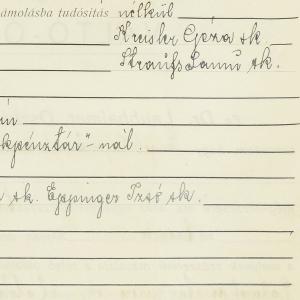 ámolásba tudósítás nélkül
Kreisler Géza sk.
Strauss Samu sk.
án
kpénztár"-nál.
sk. Eppinger Izsó sk.